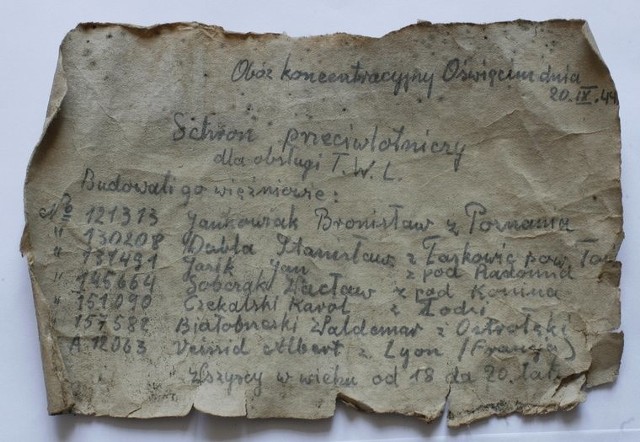 Obóz koncentracyjny Oświęcim dnia
20.IV.44
Schron przeciwlotniczy
dla obsługi T.W.L.
Budowali go więźniowie:
No 121313 Jankowiak Bronisław z Poznania
" 130208 Dubla Stanisław z Łaskowic pow. Tor
" 131491 Jasik Jan z pod Radomia
" 145664 Sobczak Wacław z pod Konina
" 151090 Czekalski Karol z Łodzi
157582 Białobrzeski Waldemar z Ostrołęki
A 12063 Veinid Albert z Lyon (Francja)
Wszyscy w wieku od 18 do 20 lat.